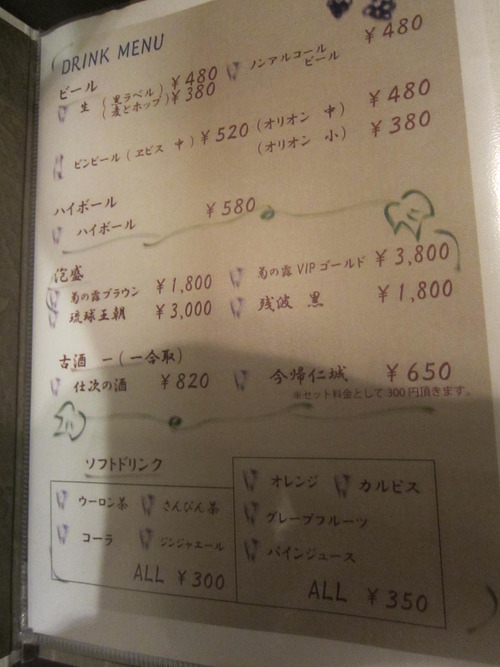 DRINK MENU
ビール
生 (黒ラベル) ¥480
(麦とホップ) ¥380
ノンアルコール
ビール ¥480
ビンビール(ヱビス 中) ¥520
(オリオン 中) ¥480
(オリオン 小) ¥380
ハイボール
ハイボール ¥580
泡盛
菊の露ブラウン ¥1,800
琉球王朝 ¥3,000
菊の露VIPゴールド ¥3,800
残波 黒 ¥1,800
古酒 一(一合取)
仕次の酒 ¥820
今帰仁城 ¥650
※セット料金として300円頂きます。
ソフトドリンク
ウーロン茶 さんぴん茶
コーラ ジンジャエール
ALL ¥300
オレンジ カルピス
グレープフルーツ
パインジュース
ALL ¥350